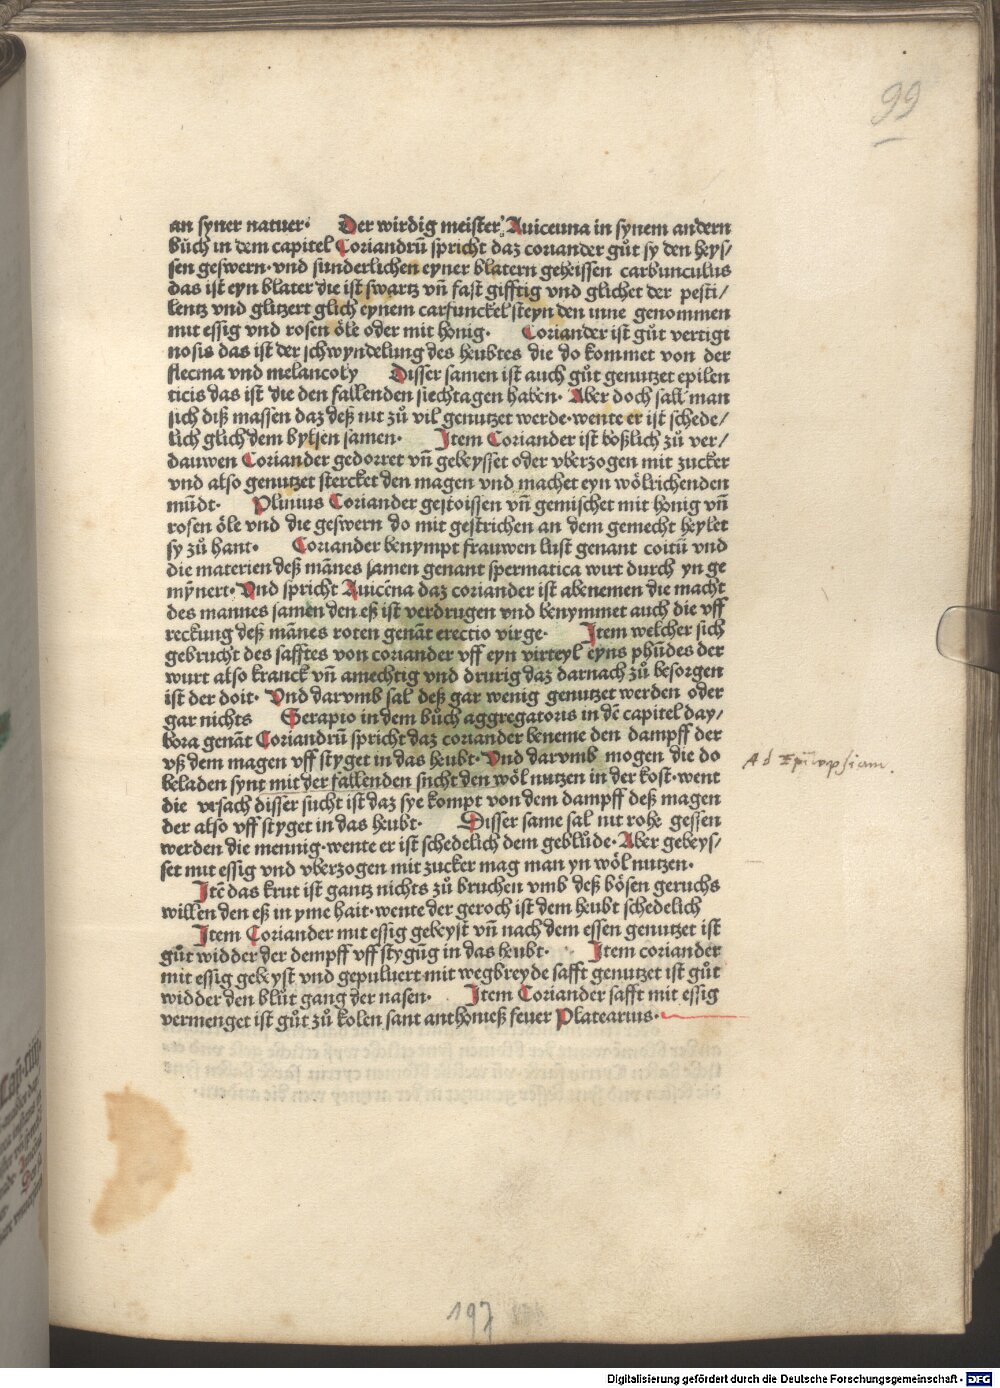 99
an syner natuer· Der wirdig meister Auicenna in synem andern
bůch in dem capitel Coriandrū spricht daz coriander gůt sy den heys/
sen geswern·vnd sunderlichen eyner blatern geheissen carbunculus
das ist eyn blater die ist swartz vn̄ fast gifftig vnd glichet der pesti/
lentz vnd glitzert glich eynem carfunckel steyn den inne genommen
mit essig vnd rosen öle oder mit honig· Coriander ist gůt vertigi
nosis das ist der schwyndelung des heubtes die do kommet von der
flecma vnd melancoly Disser samen ist auch gůt genutzet epilen
ticis das ist die den fallenden siechtagen haben· Aber doch sall man
sich diß massen daz deß nit zů vil genutzet werde·wente er ist schede/
lich glich dem bylsen samen· Item Coriander ist bößlich zů ver/
dauwen Coriander gedorret vn̄ gebeysset oder vberzogen mit zucker
vnd also genutzet stercket den magen vnd machet eyn wölrichenden
mūdt· Plinius Coriander gestoissen vn̄ gemischet mit honig vn̄
rosen öle vnd die geswern do mit gestrichen an dem gemecht heylet
sy zů hant· Coriander benympt frauwen lust genant coitū vnd
die materien deß mānes samen genant spermatica wirt durch yn ge
mȳnert· Vnd spricht Auicēna daz coriander ist abenemen die macht
des mannes samen den eß ist verdrugen vnd benymmet auch die vff
reckung deß mānes roten genāt erectio virge· Item welcher sich
gebrucht des safftes von coriander vff eyn virteyl eyns phūdes der
wurt also kranck vn̄ amechtig vnd drurig daz darnach zů besorgen
ist der doit· Vnd darvmb sal deß gar wenig genutzet werden oder
gar nichts Serapio in dem bůch aggregatoris in dē capitel day/
bora genāt Coriandrū spricht daz coriander beneme den dampff der
vß dem magen vff styget in das heubt· Vnd darvmb mogen die do
beladen synt mit der fallenden sucht den wöl nutzen in der kost·went
die vrsach disser sucht ist daz sye kompt von dem dampff deß magen
der also vff styget in das heubt· Disser same sal nit rohe gessen
werden die mennig·wente er ist schedelich dem geblůde· Aber gebeys/
set mit essig vnd vberzogen mit zucker mag man yn wöl nutzen·
Itē das krut ist gantz nichts zů bruchen vmb deß bösen geruchs
willen den eß in yme hait·wente der geroch ist dem heubt schedelich
Item Coriander mit essig gebeyst vn̄ nach dem essen genutzet ist
gůt widder der dempff vff stygūg in das heubt· Item coriander
mit essig gebeyst vnd gepuluert mit wegbreyde safft genutzet ist gůt
widder den blůt gang der nasen· Item Coriander safft mit essig
vermenget ist gůt zů kolen sant anthonieß feuer Platearius·
Ad Epilepsiam.
197
Digitalisierung gefördert durch die Deutsche Forschungsgemeinschaft - DFG